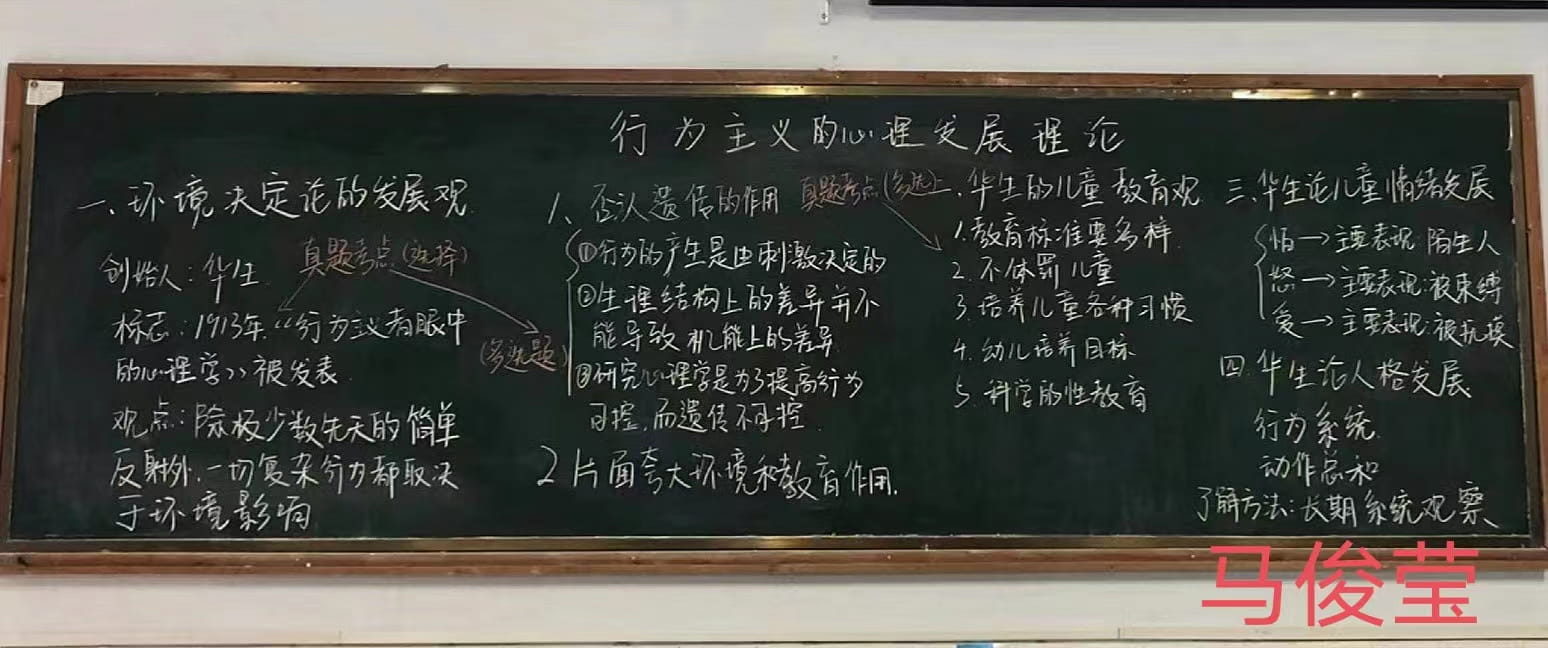 行为主义的心理发展理论
一、环境决定论的发展观
真题考点(选择)
创始人：华生
标志：1913年《行为主义者眼中
的心理学》被发表
观点：除极少数先天的简单
反射外，一切复杂行为都取决
于环境影响
1、否认遗传的作用
①行为的产生是由刺激决定的
②生理结构上的差异并不
能导致机能上的差异
(多选题)
③研究心理学是为了提高行为
可控，而遗传不可控
2 片面夸大环境和教育作用.
真题考点(多选)
二.华生的儿童教育观
1.教育标准要多样
2.不体罚儿童
3.培养儿童各种习惯
4.幼儿培养目标
5.科学的性教育
三.华生论儿童情绪发展
怕→主要表现:陌生人
怒→主要表现:被束缚
爱→主要表现:被抚摸
四.华生论人格发展
行为系统
动作总和
了解方法:长期系统观察
马俊莹